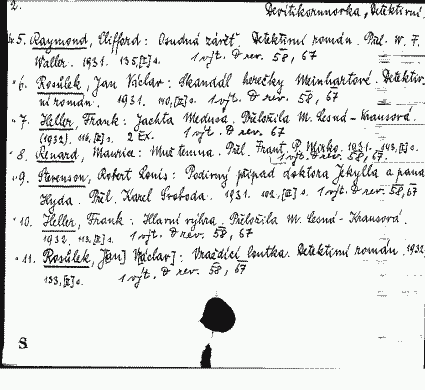 2. Devítikorunovka "Detektivní
5. Raymond, Clifford: Osudná závěť. Detektivní román. Přel. W. F.
Waller. 1931. 135,[I] s. 1 výt. D rev. 58, 67
6. Rosůlek, Jan Václav: Skandál herečky Meinhartové. Detektiv
ní román. 1931. 140,[II] s. 1 výt. D rev. 58, 67
7. Heller, Frank: Jachta Medusa. Přeložila M. Lesná-Krausová.
(1932). 116,[I] s. 2 Ex. 1 výt. D rev. 67
8. Renard, Maurice: Muž temna. Přel. Frant. P. Mirko. 1931. 143,[I] s.
1 výt. D rev. 58, 67.
9. Stevenson, Robert Louis: Podivný případ doktora Jekylla a pana
Hyda. Přel. Karel Svoboda. 1931. 102,[II] s. 1 výt. D rev. 58, 67
10. Heller, Frank: Hlavní výhra. Přeložila M. Lesná-Krausová.
1932. 113,[I] s. 1 výt. D rev. 58, 67
11. Rosůlek, J[an] V[áclav]: Vraždící loutka. Detektivní román. 1932
133,[I] s. 1 výt. D rev. 58, 67
S